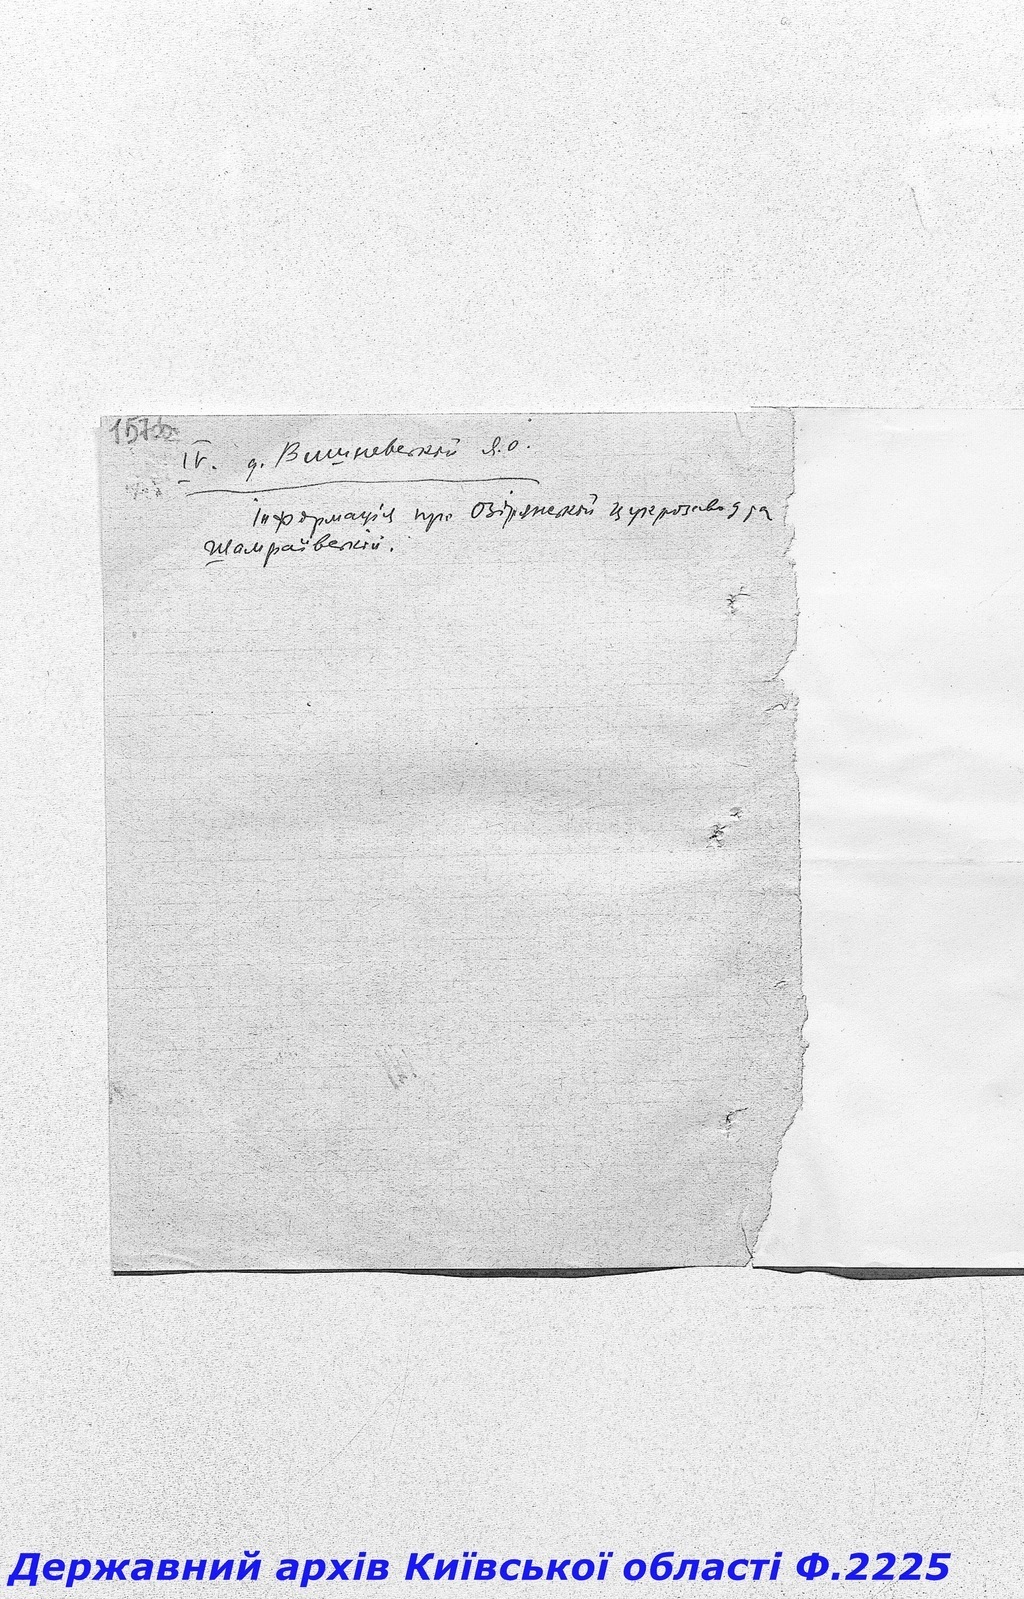 157зв.
IV. д. Вишневській Я.О.
Інформація про Озірянській цукрозавод та
Шамраївській.
Державний архів Київської області Ф.2225